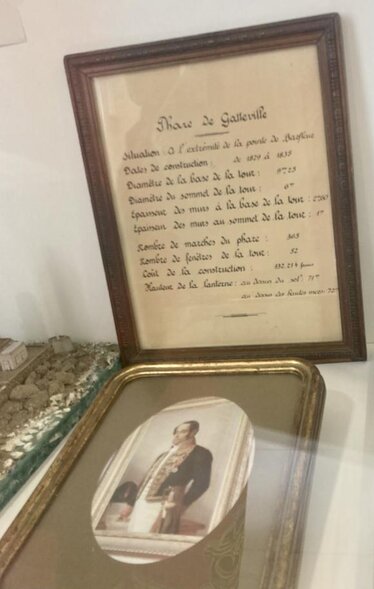 Phare de Gatteville
Situation : à l'extrémité de la pointe de Barfleur
Dates de construction : de 1829 à 1835
Diamètre de la base de la tour : 9m25
Diamètre du sommet de la tour : 6m
Epaisseur des murs à la base de la tour :
Epaisseur des murs au sommet de la tour : 1m
Nombre de marches du phare : 365
Nombre de fenêtres de la tour : 52
Coût de la construction :
Hauteur de la lanterne : au dessus du sol 71m
au dessus des hautes mers 72m